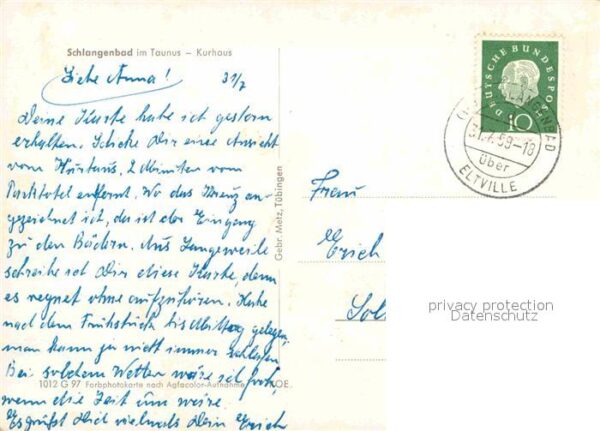 Schlangenbad im Taunus – Kurhaus
Liebe Anna! 31/7
Deine Karte habe ich gestern
erhalten. Schicke Dir eine Ansicht
vom Kurhaus, 2 Minuten vom
Parkhotel entfernt. Wo das Kreuz an-
gezeichnet ist, da ist der Eingang
zu den Bädern. Aus Langeweile
schreibe ich Dir diese Karte, denn
es regnet ohne aufzuhören. Habe
nach dem Frühstück bis Mittag gelegen,
man kann ja nicht immer schlafen.
Bei solchem Wetter wäre ich froh,
1012 G 97 Farbphotokarte nach Agfacolor-Aufnahme
wenn die Zeit um wäre.
Es grüßt Dich vielmals Dein Erich
Gebr. Metz, Tübingen
DEUTSCHE BUNDESPOST
10
SCHLANGENBAD
31.7.59-18
über
ELTVILLE
Frau
Erich
privacy protection
Datenschutz